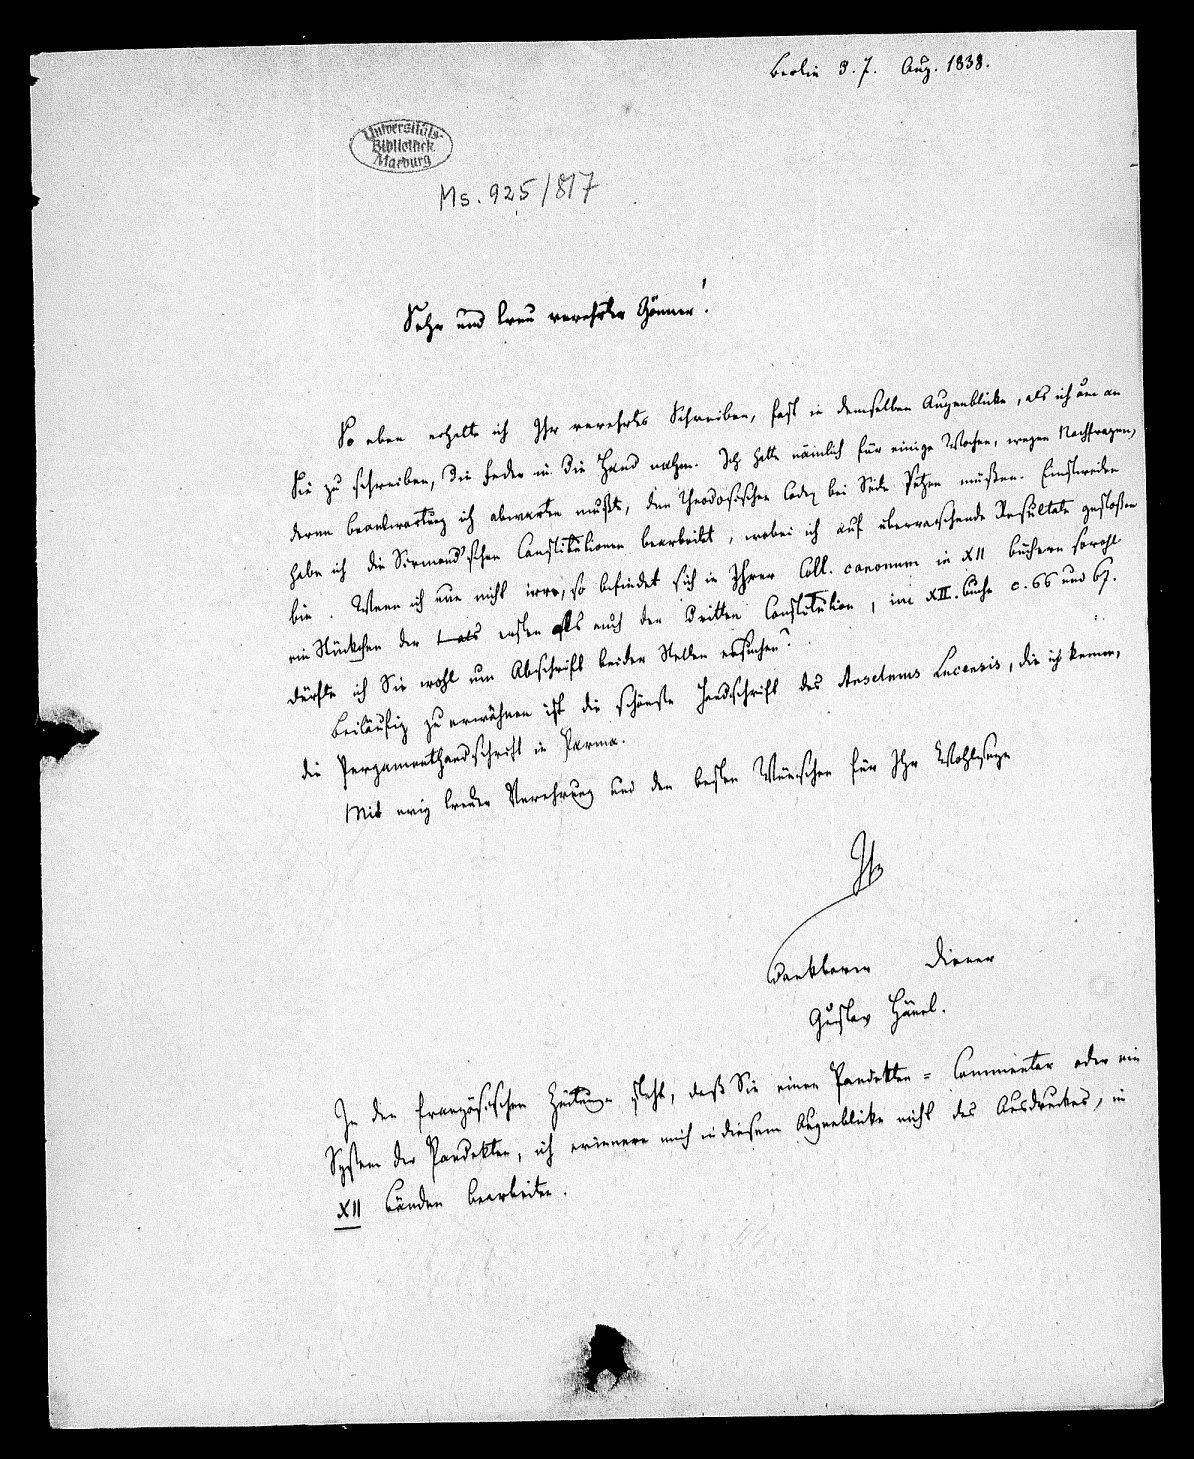 Berlin d. 7. Aug. 1838.
Universitäts-
Bibliothek
Marburg
Ms. 925/817
Sehr und treu verehrter Gönner!
So eben erhalte ich Ihr verehrtes Schreiben, fast in demselben Augenblicke, als ich um an
Sie zu schreiben, die Feder in die Hand nahm. Ich hatte nämlich für einige Wochen, wegen Nachfragen,
deren Beantwortung ich abwarten mußte, den Theodosischen Codex bei Seite setzen müßen. Einstweilen
habe ich die Sirmond'schen Constitutionen bearbeitet, wobei ich auf überraschende Resultate gestoßen
bin. Wenn ich nun nicht irre, so befindet sich in Ihrer Coll. canonum in XII büchern sowohl
ein Stückchen der ersten als auch der dritten Constitution, im XII. buche c. 66 und 67.
Dürfte ich Sie wohl um Abschrift beider Stellen ersuchen?
Beiläufig zu erwähnen ist die schönste Handschrift des Anselmus Lucensis, die ich kenne,
die Pergamenthandschrift in Parma.
Mit ewig treuer Verehrung und den besten Wünschen für Ihr Wohlseyn
Ihr
dankbarer Diener
Gustav Hänel.
In den französischen Zeitungen steht, daß Sie einen Pandekten = Commentar oder ein
System der Pandekten, ich erinnere mich in diesem Augenblicke nicht des Ausdruckes, in
XII bänden bearbeiten.